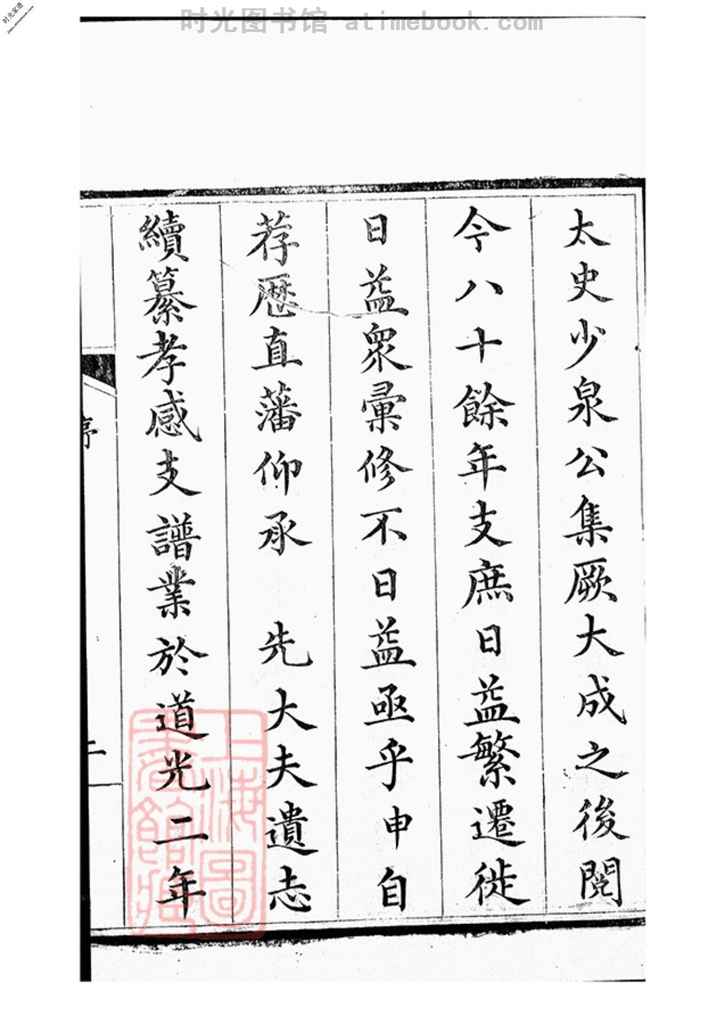 时光图书馆 atimebook.com
太史少泉公集厥大成之後閱
今八十餘年支庶日益繁遷徙
日益衆彙修不日益亟乎申自
荐歴直藩仰承 先大夫遺志
續纂孝感支譜業於道光二年
序
二
上海圖書館藏